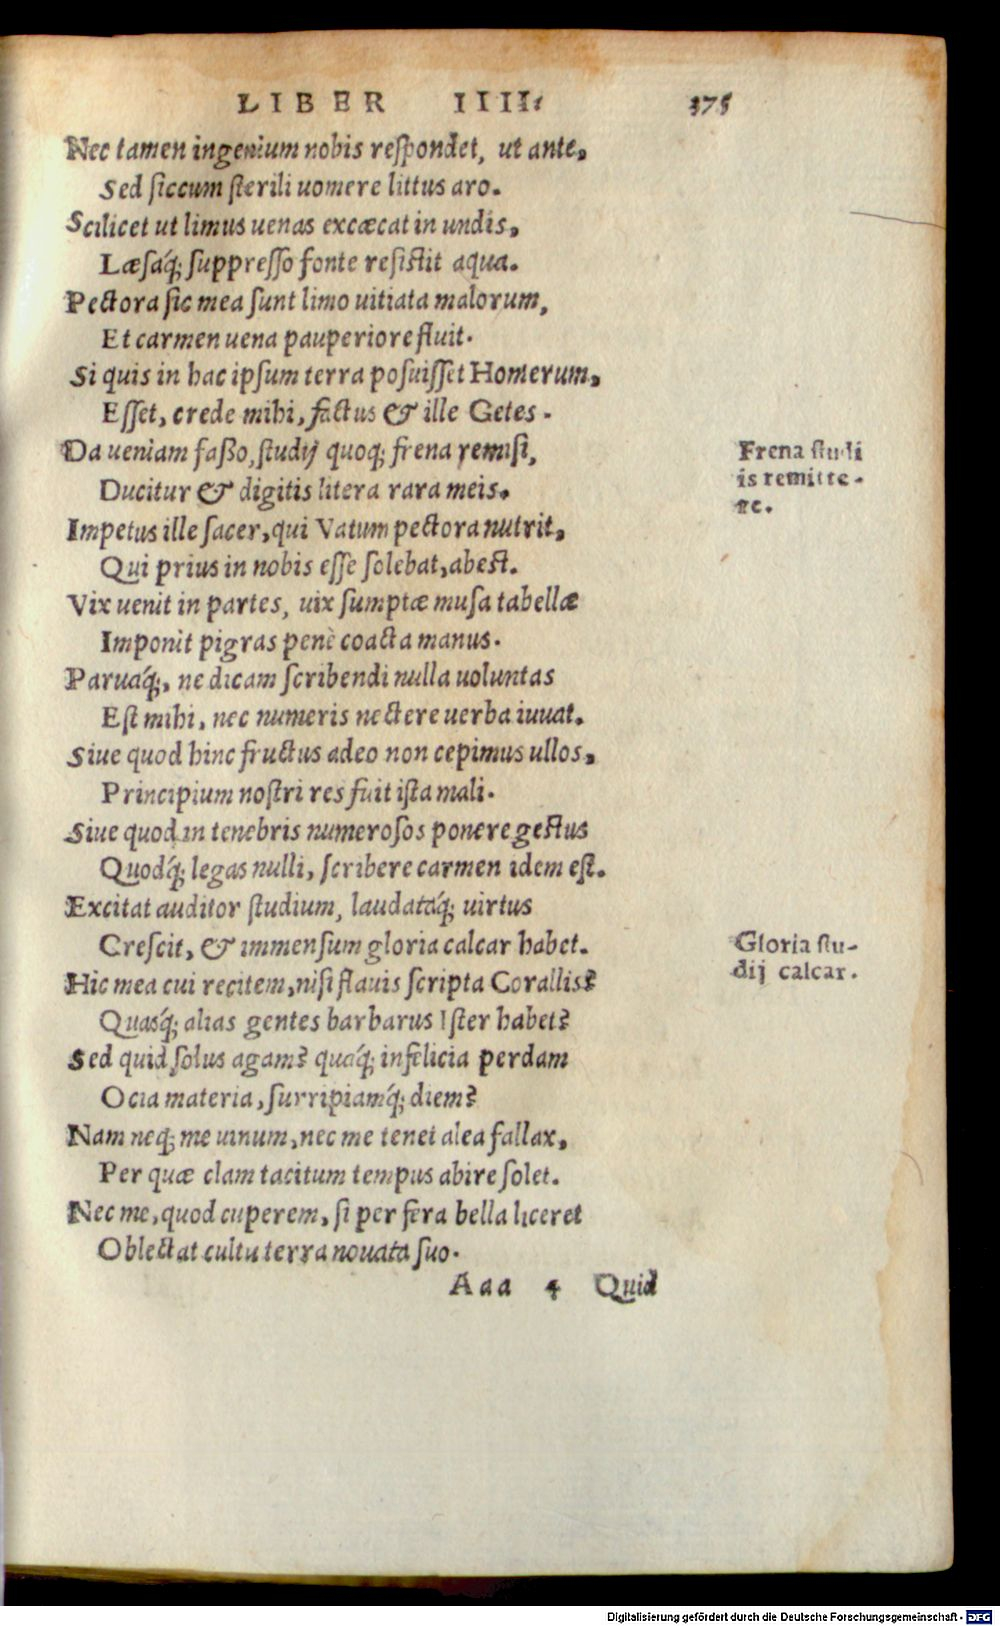 LIBER IIII. 375
Nec tamen ingenium nobis reſpondet, ut ante,
Sed ſiccum ſterili uomere littus aro.
Scilicet ut limus uenas excæcat in undis,
Læſaq́; ſuppreſſo fonte reſiſtit aqua.
Pectora ſic mea ſunt limo uitiata malorum,
Et carmen uena pauperiore fluit.
Si quis in hac ipſum terra poſuiſſet Homerum,
Eſſet, crede mihi, factus & ille Getes.
Da ueniam faßo, ſtudij quoq; frena remiſi,
Frena ſtudi
Ducitur & digitis litera rara meis.
is remitte-
re.
Impetus ille ſacer, qui Vatum pectora nutrit,
Qui prius in nobis eſſe ſolebat, abeſt.
Vix uenit in partes, uix ſumptæ muſa tabellæ
Imponit pigras penè coacta manus.
Paruaq́;, ne dicam ſcribendi nulla uoluntas
Eſt mihi, nec numeris nectere uerba iuuat.
Siue quod hinc fructus adeo non cepimus ullos,
Principium noſtri res fuit iſta mali.
Siue quod in tenebris numeroſos ponere geſtus
Quodq́; legas nulli, ſcribere carmen idem eſt.
Excitat auditor ſtudium, laudataq́; uirtus
Creſcit, & immenſum gloria calcar habet.
Gloria ſtu-
dij calcar.
Hic mea cui recitem, niſi flauis ſcripta Corallis?
Quasq́; alias gentes barbarus Iſter habet?
Sed quid ſolus agam? quaq́; infelicia perdam
Ocia materia, ſurripiamq́; diem?
Nam neq; me uinum, nec me tenet alea fallax,
Per quæ clam tacitum tempus abire ſolet.
Nec me, quod cuperem, ſi per fera bella liceret
Oblectat cultu terra nouata ſuo.
Aaa 4 Quid
Digitalisierung gefördert durch die Deutsche Forschungsgemeinschaft - DFG